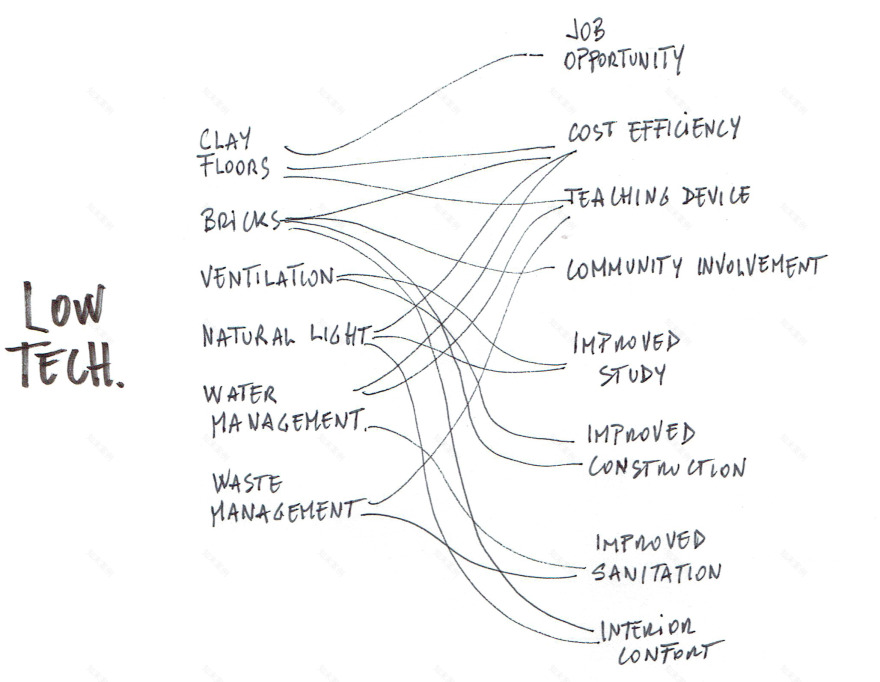 LOW
TECH.
CLAY
FLOORS
BRICKS
VENTILATION
NATURAL LIGHT
WATER
MANAGEMENT
WASTE
MANAGEMENT
JOB
OPPORTUNITY
COST EFFICIENCY
TEACHING DEVICE
COMMUNITY INVOLVEMENT
IMPROVED
STUDY
IMPROVED
CONSTRUCTION
IMPROVED
SANITATION
INTERIOR
CONFORT